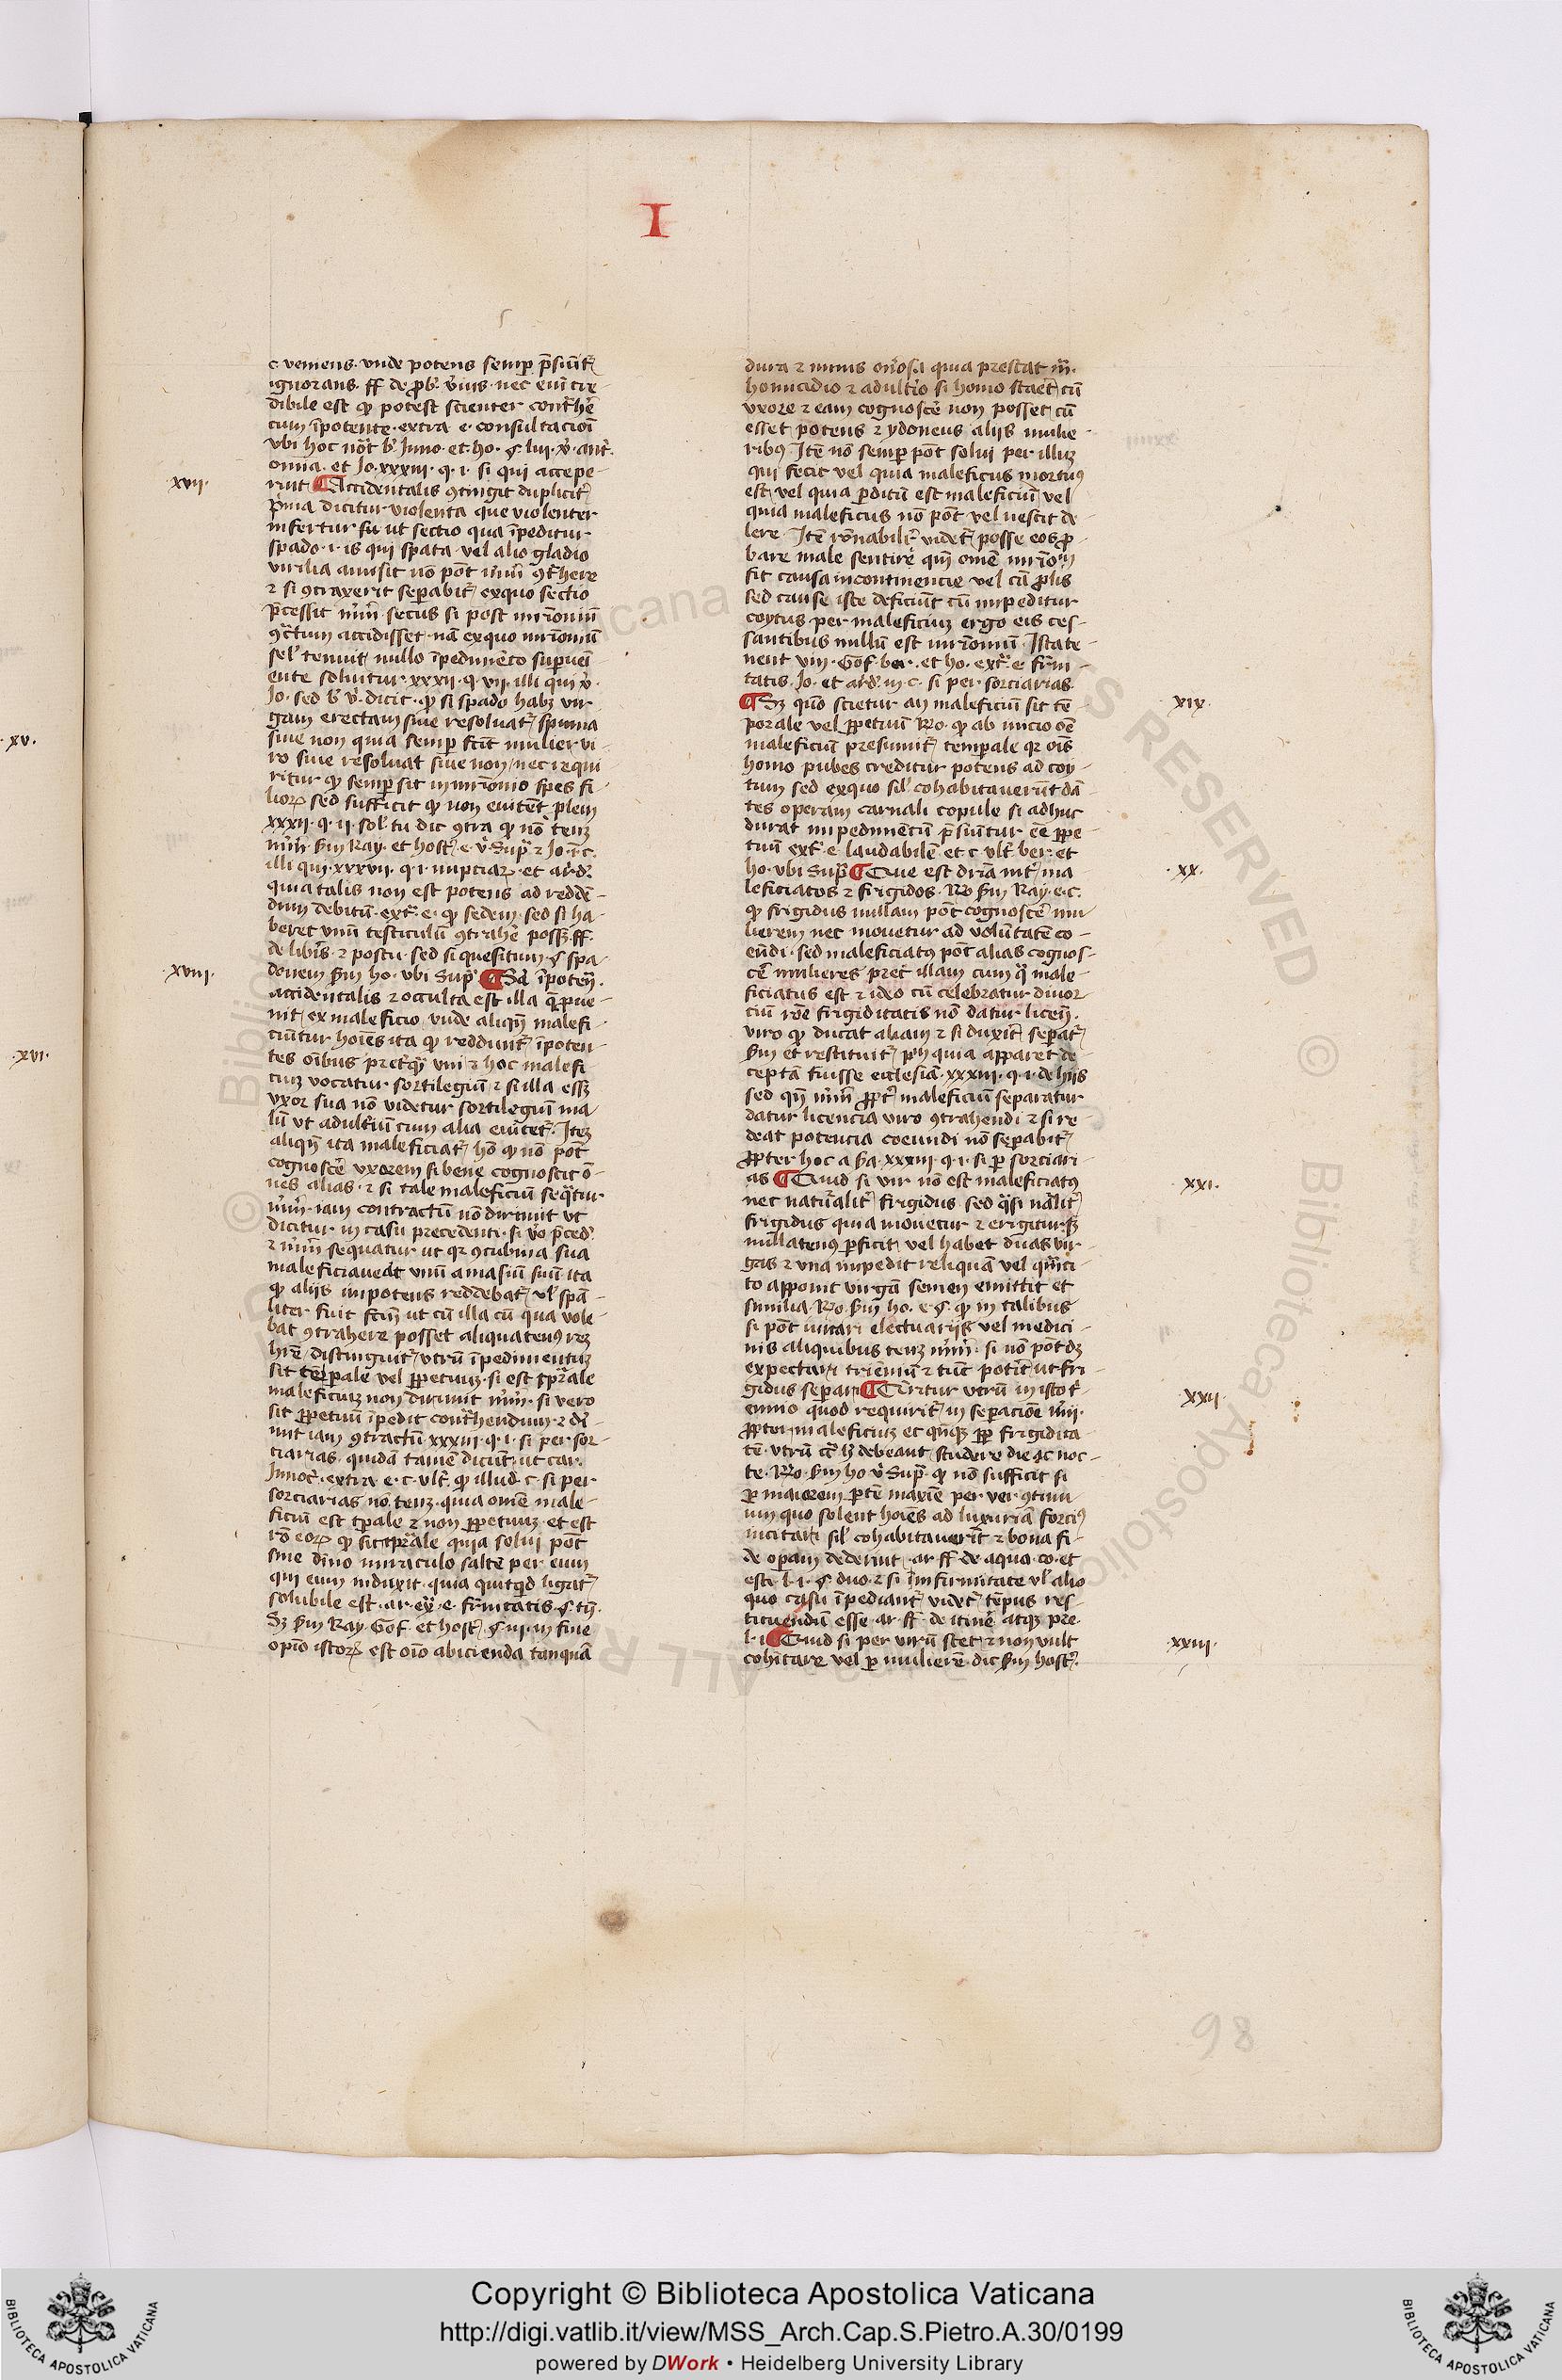 I
c veniens. vnde potens semp p̄sūit᷑
ignorans. ff de ꝓb. v̓bis. nec eni cre
dibile est ꝙ potest scienter cont̓he᷑
cum īpotente. extra e. consultacioī
vbi hoc not̄. b̓. Inno. et. ho. § lui. v̓. aut̄.
omnia. et Jo. xxxiii. q. i. si qui accepe-
xvii.
rūt ¶ Accidentalis ꝯtingit duplicit᷑
p̓ma dicitur violenta que violenter
infertur sic ut sectio qua īpeditur
spado. i. is qui spata. vel alio gladio
virilia amisit nō pōt m̓im ꝯt̓here
⁊ si ꝯtraxerit sepabit᷑ exquo sectio
p̄cessit m̓im secus si post mr̄imoniū
ꝯt̓ctum accidisset. nā exquo mr̄imoniū
sel̓ tenuit nullo īpedimēto supueī
ente soluitur xxxii. q. vii. illi qui v̓.
Jo. sed b̓ v̓. dicit. ꝙ si spado habꝫ vir
gam erectam siue resoluat᷑ spuma
siue non quia semp fcīt mulier vi
ro siue resoluat siue non nec requi
ritur ꝙ semp sit in mr̄imonio spes fi
lioꝝ sed sufficit ꝙ non euitēt plem
xxxii. q. ii. sol̓. tu dic ꝯtra ꝙ nō tenꝫ
m̓im s̄m Ray. et host̓. e. v̓ sup̓ ⁊ Jo. i. c.
illi qui. xxxvii. q. i. nupciaꝝ. et ar.d.
quia talis non est potens ad reddē-
dum debitū. ext̓. e. ꝙ sedem. sed si ha-
beret vnū testiculū ꝯtrahe᷑ possꝫ. ff.
de lib̓is. ⁊ postu. sed si quesitum. § spa-
xviii.
donem s̄m ho. vbi sup̓ ¶ Sꝫ īpoten̄.
accidentalis ⁊ occulta est illa q̄ pue-
nit ex maleficio vnde aliqn̄ malefi-
ciūtur hoīes ita ꝙ reddunt᷑ īpoten-
tes oībus pret̓q̄ vni ⁊ hoc malefi
ciuꝫ vocatur sortilegiū ⁊ si illa essꝫ
vxor sua nō videtur sortilegiū ma
lū ut adult̓iū cum alia euitet᷑. Iteꝫ
aliqn̄ ita maleficiat᷑ hō ꝙ nō pōt
cognosce᷑ vxorem si bene cognoscit ō-
nes alias. ⁊ si tale maleficiū seq̄tur
m̓im. iam contractū nō dirimit ut
dicitur in casu precedenti. si v̓o p̄ced̓.
⁊ m̓im sequatur ut qꝛ ꝯcubina sua
maleficiauerat vnū amasiū suū ita
ꝙ aliis impotens reddebat᷑ vl̓ spā-
liter fuit fcm̄ ut cū illa cū qua vole
bat ꝯtrahere posset aliquatenꝰ rem
hr̄e distinguit᷑ vtrū īpedimentuꝫ
sit tēporale vel ꝑpetuuꝫ. si est tp̄rale
maleficiuꝫ non dirimit m̓im. si vero
sit ꝑpetuū īpedit cont̓hendum. ⁊ di-
mit iam ꝯtractū xxxiii. q. i. si per sor-
ciarias. quidā tamē dicūt ut car.
Innoc̄. extra. e. c. vlt̄. ꝙ illud. c. si per
sorciarias nō tenꝫ. quia omē male-
ficiū est tp̄ale ⁊ non ꝑpetuuꝫ. et est
rō eoꝝ ꝙ sit tp̄rale quia solui pōt
sine diuo miraculo saltē per eum
qui eum induxit. quia quitqd̓ ligat᷑
solubile est. ar. ex̓. e. fr̄nitatis. § tu.
Sꝫ s̄m Ray. Gof. et host̓. § iii. in fine
opīo istoꝝ est oīo abicienda tanquā
dura ⁊ nimis onosa quia prestat m̄.
homicidio ⁊ adult̓io si homo staret cū
vxore ⁊ eam cognosce᷑ non posset cū
esset potens ⁊ ydoneus aliis mulie-
ribꝰ. Itē nō semp pōt solui per illuꝫ
qui fecit vel quia maleficus mortuꝰ
est vel quia pditū est maleficiū vel
quia maleficus nō pōt vel nescit de
lere. Itē rōnabilit̓ videt᷑ posse eos ꝓ
bare male sentire᷑ qm̄ omē mr̄imoīm
fit causa incontinencie vel cā ꝓlis
sed cause iste deficiūt cū impeditur
coytus per maleficiuꝫ ergo eis ces-
santibus nullū est mr̄imoniū. Ista te-
nent viii. Gof. ber. et ho. ext̓. e. fr̄ni-
tatis. Jo. et ard̓. in. c. si per sorciarias.
xix.
¶ Sꝫ quō scietur an maleficiū sit tē
porale vel ꝑpetuū Ro. ꝙ ab inicio oē
maleficiū presumit᷑ temporale qꝛ oīs
homo pubes creditur potens ad coy
tum sed exquo sil̓ cohabitauerūt dā
tes operam carnali copule si adhuc
durat impedimētū p̄sūitur eē ꝑpe-
tuū ext̓. e. laudabilē et. c. vlt̄. ber. et
xx.
ho. vbi sup̓ ¶ Que est dr̄ia int̓ ma
leficiatos ⁊ frigidos. Ro s̄m Ray. e. c.
ꝙ frigidus nullam pōt cognosce᷑ mu
lierem nec mouetur ad volūtatē co-
eūdi. sed maleficiatꝰ pōt alias cognos-
ce᷑ mulieres pret̓ illam cum q̄ male-
ficiatus est ⁊ ideo cū celebratur diuor
ciū rōe frigiditatis nō datur licen̄.
viro ꝙ ducat aliam ⁊ si duxit᷑ sepat᷑
s̄m et restituit᷑ ph̄ quia apparet de
ceptā fuisse ecclesiā. xxxiii. q. i. de hiis
sed qn̄ m̓im ꝓpt̓ maleficiū separatur
datur licencia viro ꝯtrahendi ⁊ si re
deat potencia coeundi nō sepabit᷑
ꝓpter hoc a s̄a. xxxiii. q. i. si p sorciari-
xxi.
as ¶ Quid si vir nō est maleficiatꝰ
nec nat̓alit̓ frigidus sed q̄si nālit̓
frigidus quia mouetur ⁊ erigitur sꝫ
nullatenꝰ pficit vel habet duas vir-
gas ⁊ vna impedit reliquā vel qm̄ci-
to apponit virgā semen emittit et
similia. Ro. s̄m ho. e. § ꝙ in talibus
si pōt iuuari electuariis vel medici-
nis aliquibus tenꝫ m̓im. si nō pōt dꝫ
expectari trieniū ⁊ tūc potit̓ ut fri-
xxii.
gidus separari ¶ Queritur vtrū in isto t̓
ennio quod requirit᷑ in sepacioē m̓ii.
ꝓpter maleficiuꝫ et qn̄qꝫ ꝓp̄ frigidita
tē. vtrū debeant studere die ac noc-
te. Ro. s̄m ho v̓ sup̄. ꝙ nō sufficit si
p maiorem ptē maxīe per ver ꝯtinu-
um quo solent hoīes ad luxuriā forciꝰ
incitari sil̓ cohabitauerīt ⁊ bona fi-
de opam dederint. ar. ff. de aqua. co. et
esti. l. i. § duo. ⁊ si īnfirmitate vl̓ alio
quo casu īpediant᷑ videt᷑ tēpus res-
tituendū esse. ar. ff. de itine᷑. atqꝫ pre.
xxiii.
l. i ¶ Quid si per virū stet ⁊ non vult
cohitare vel p mulierē. dic s̄m host̓.
xv.
xvi.
98
Copyright © Biblioteca Apostolica Vaticana
http://digi.vatlib.it/view/MSS_Arch.Cap.S.Pietro.A.30/0199
powered by DWork • Heidelberg University Library
BIBLIOTECA APOSTOLICA VATICANA
BIBLIOTECA APOSTOLICA VATICANA